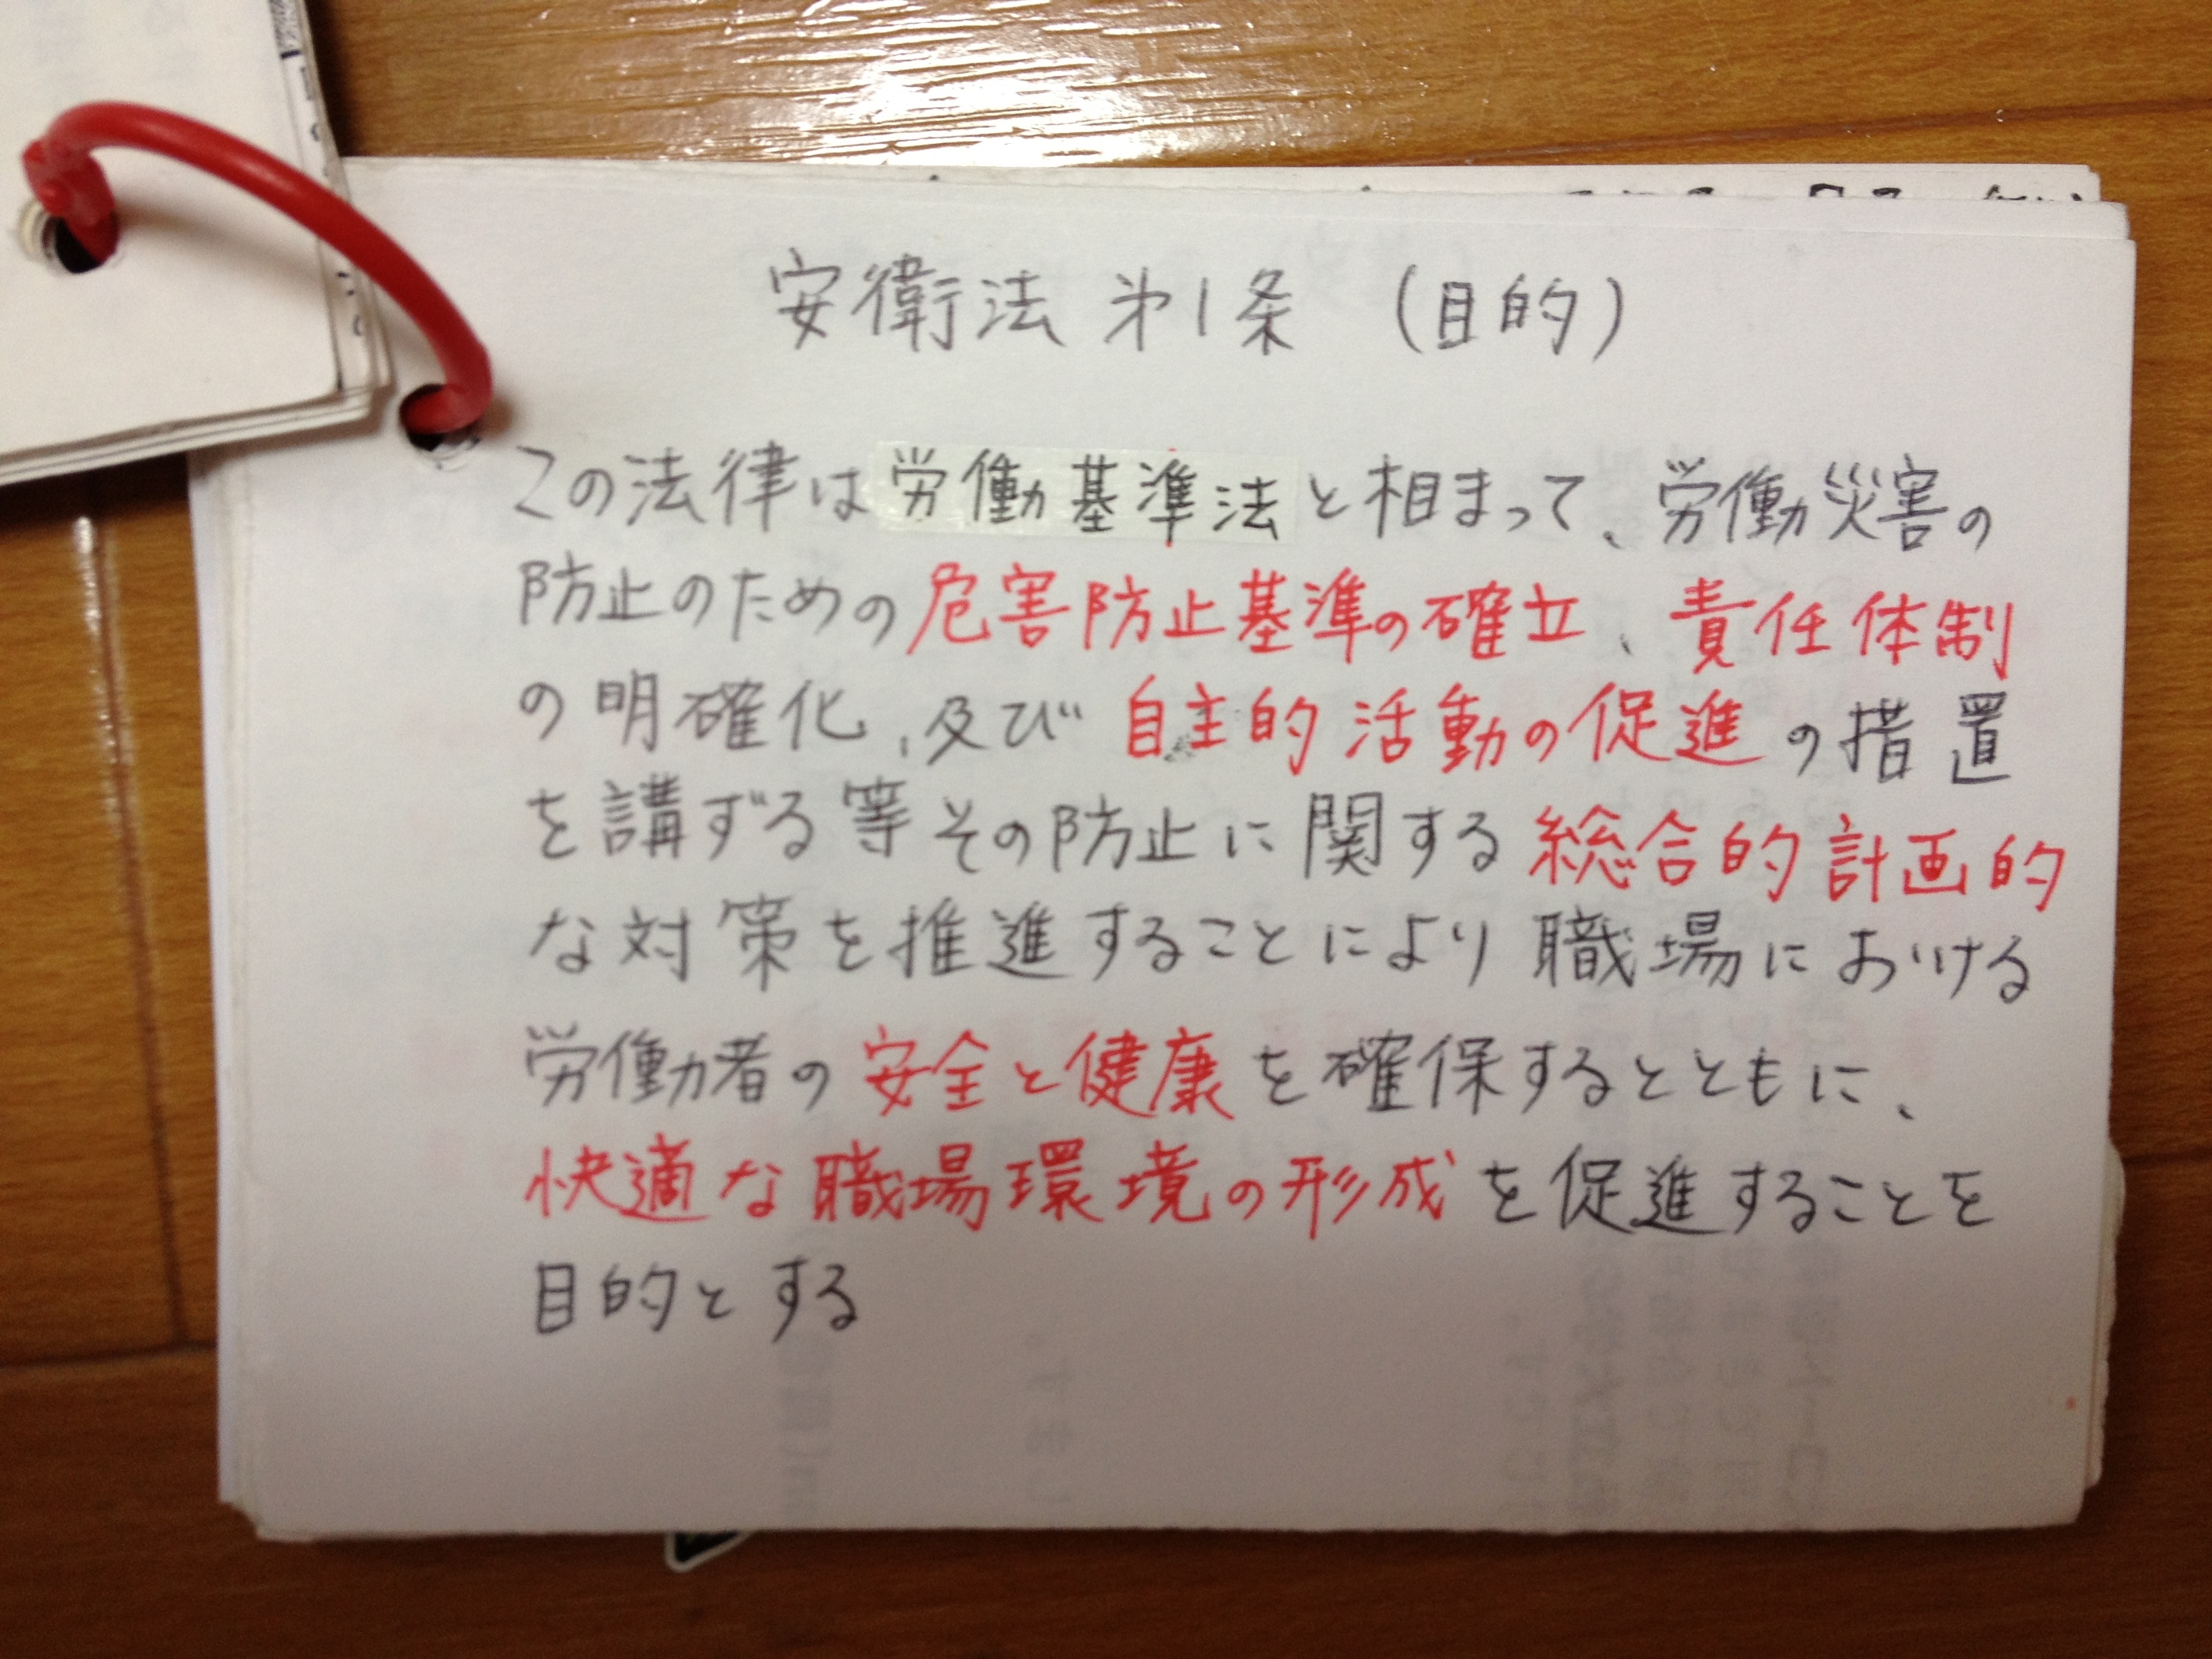 安衛法 第1条 (目的)
この法律は労働基準法と相まって、労働災害の
防止のための危害防止基準の確立、責任体制
の明確化、及び自主的活動の促進の措置
を講ずる等その防止に関する総合的計画的
な対策を推進することにより職場における
労働者の安全と健康を確保するとともに、
快適な職場環境の形成を促進することを
目的とする